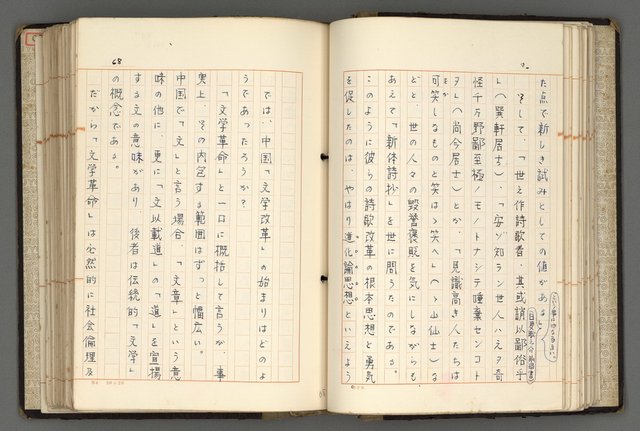 た点で新しき試みとしての値がある」
そして、「世之作詩歌者、其或誚以鄙俗乎
」（巽軒居士）、「安ンゾ知ラン世人ハエヲ奇
怪千万野鄙至極ノモノトナシテ唾棄センコト
ヲ」（尚今居士）とか、「見識高き人たちは
可笑しなものと笑はゞ笑へ」（ゝ山仙士）な
どと、世の人々の毀誉褒貶を気にしながらも
あえて「新体詩抄」を世に問うたのである。
このように彼らの詩歌改革の根本思想と勇気
を促したのは、やはり進化論思想といえよう
か
68
では、中国「文学改革」の始まりはどのよ
うであったろうか？
「文学革命」と一口に概括して言うが、事
実上、その内包する範囲はずっと幅広い。
中国で「文」と言う場合、「文章」という意
味の他に、更に「文以載道」の「道」を宣揚
する文の意味があり、後者は伝統的「文学」
の概念である。
だから「文学革命」は必然的に社会倫理及